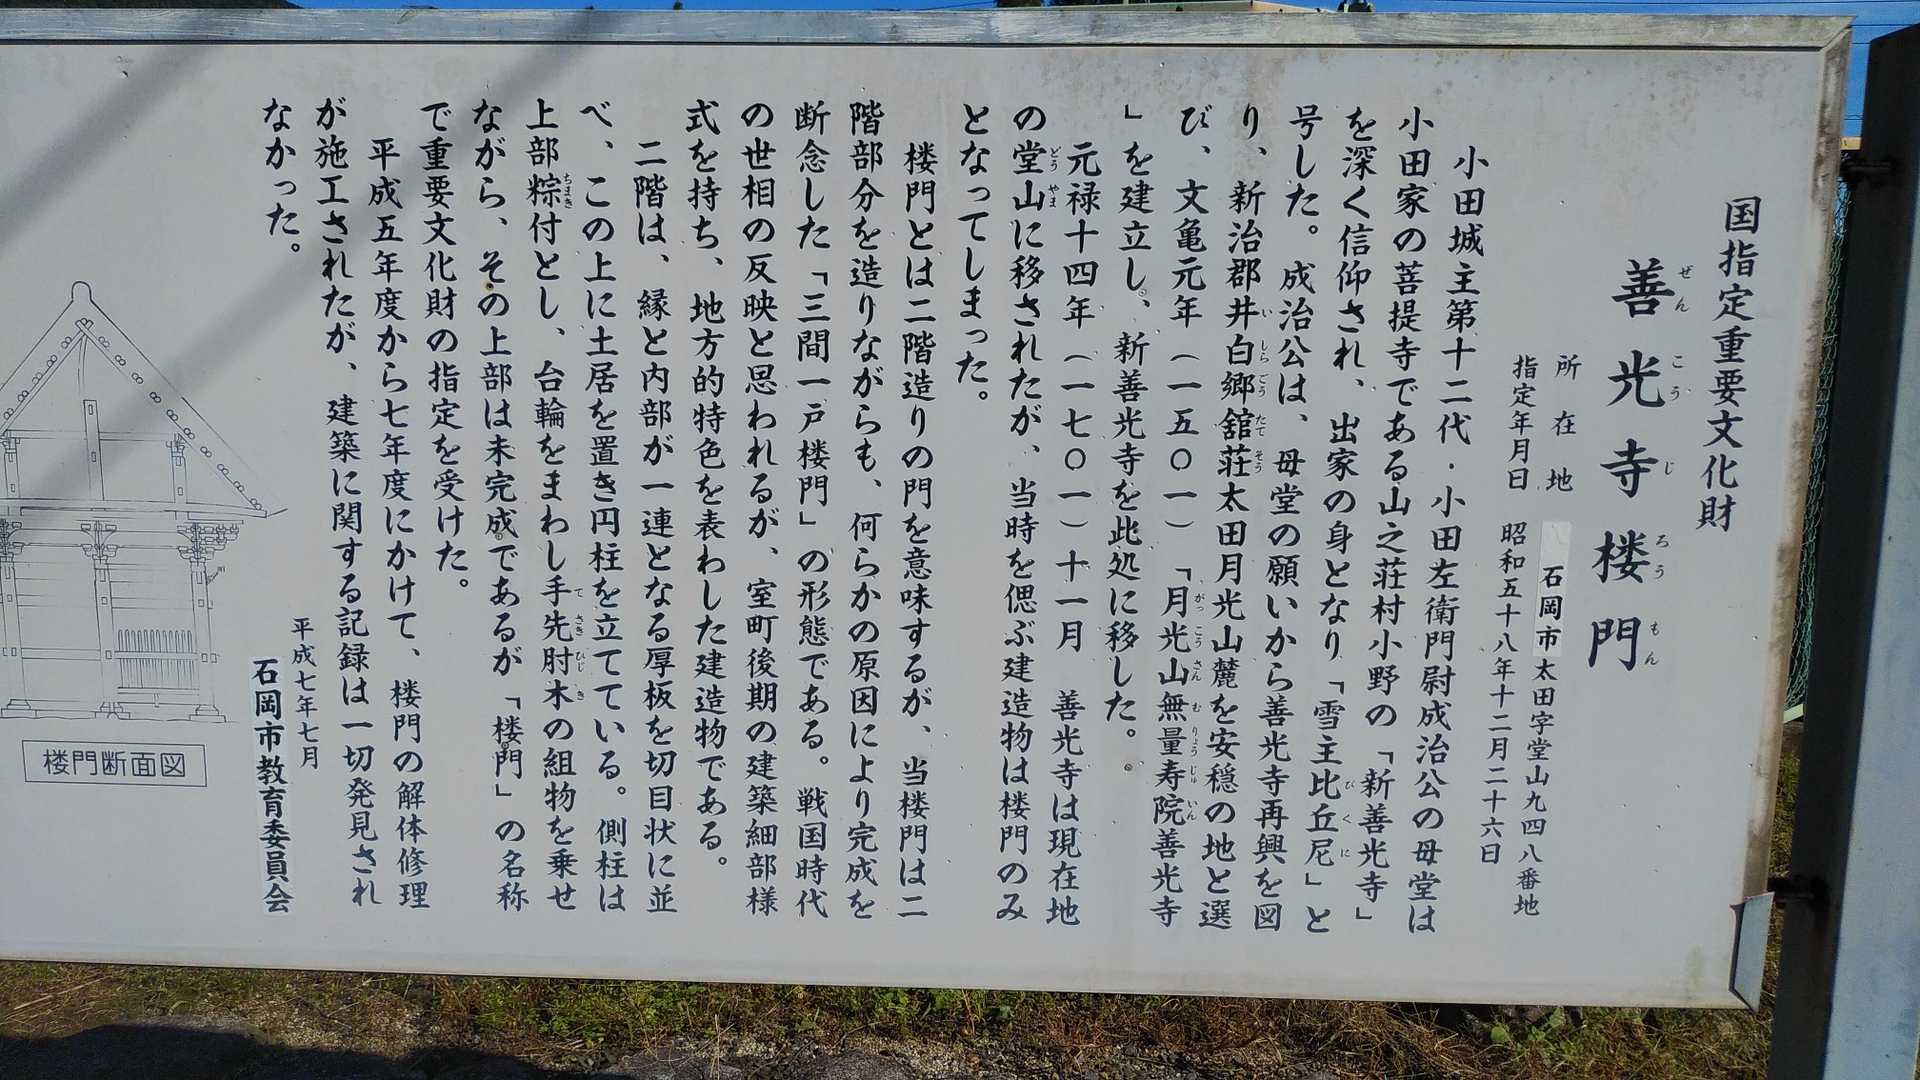 国指定重要文化財
善光寺楼門
ぜんこうじろうもん
所在地 石岡市太田字堂山九四八番地
指定年月日 昭和五十八年十二月二十六日
小田城主第十二代・小田左衛門尉成治公の母堂は
小田家の菩提寺である山之荘村小野の「新善光寺」
を深く信仰され、出家の身となり「雪主比丘尼」と
びくに
号した。成治公は、母堂の願いから善光寺再興を図
り、新治郡井白郷舘荘太田月光山麓を安穏の地と選
いしらごうたてそう
び、文亀元年(一五〇一)「月光山無量寿院善光寺
がっこうさんむりょうじゅいん
」を建立し、新善光寺を此処に移した。
元禄十四年(一七〇一)十一月 善光寺は現在地
の堂山に移されたが、当時を偲ぶ建造物は楼門のみ
どうやま
となってしまった。
楼門とは二階造りの門を意味するが、当楼門は二
階部分を造りながらも、何らかの原因により完成を
断念した「三間一戸楼門」の形態である。戦国時代
の世相の反映と思われるが、室町後期の建築細部様
式を持ち、地方的特色を表わした建造物である。
二階は、縁と内部が一連となる厚板を切目状に並
べ、この上に土居を置き円柱を立てている。側柱は
上部粽付とし、台輪をまわし手先肘木の組物を乗せ
ちまき
てさきひじき
ながら、その上部は未完成であるが「楼門」の名称
で重要文化財の指定を受けた。
平成五年度から七年度にかけて、楼門の解体修理
が施工されたが、建築に関する記録は一切発見され
なかった。
平成七年七月
石岡市教育委員会
楼門断面図